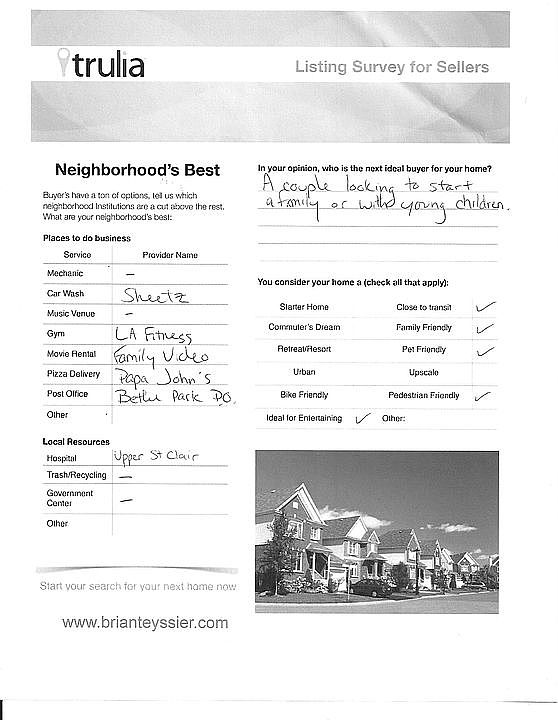 trulia
Listing Survey for Sellers
Neighborhood's Best
Buyer's have a ton of options, tell us which
neighborhood Institutions are a cut above the rest.
What are your neighborhood's best:
Places to do business
Service Provider Name
Mechanic –
Car Wash Sheetz
Music Venue –
Gym LA Fitness
Movie Rental Family Video
Pizza Delivery Papa John's
Post Office Bethel Park P.O.
Other
Local Resources
Hospital Upper St Clair
Trash/Recycling –
Government
Center –
Other
Start your search for your next home now
www.brianteyssier.com
In your opinion, who is the next ideal buyer for your home?
A couple looking to start
a family or with young children.
You consider your home a (check all that apply):
Starter Home Close to transit ✓
Commuter's Dream Family Friendly ✓
Retreat/Resort Pet Friendly ✓
Urban Upscale
Bike Friendly Pedestrian Friendly ✓
Ideal for Entertaining ✓ Other: